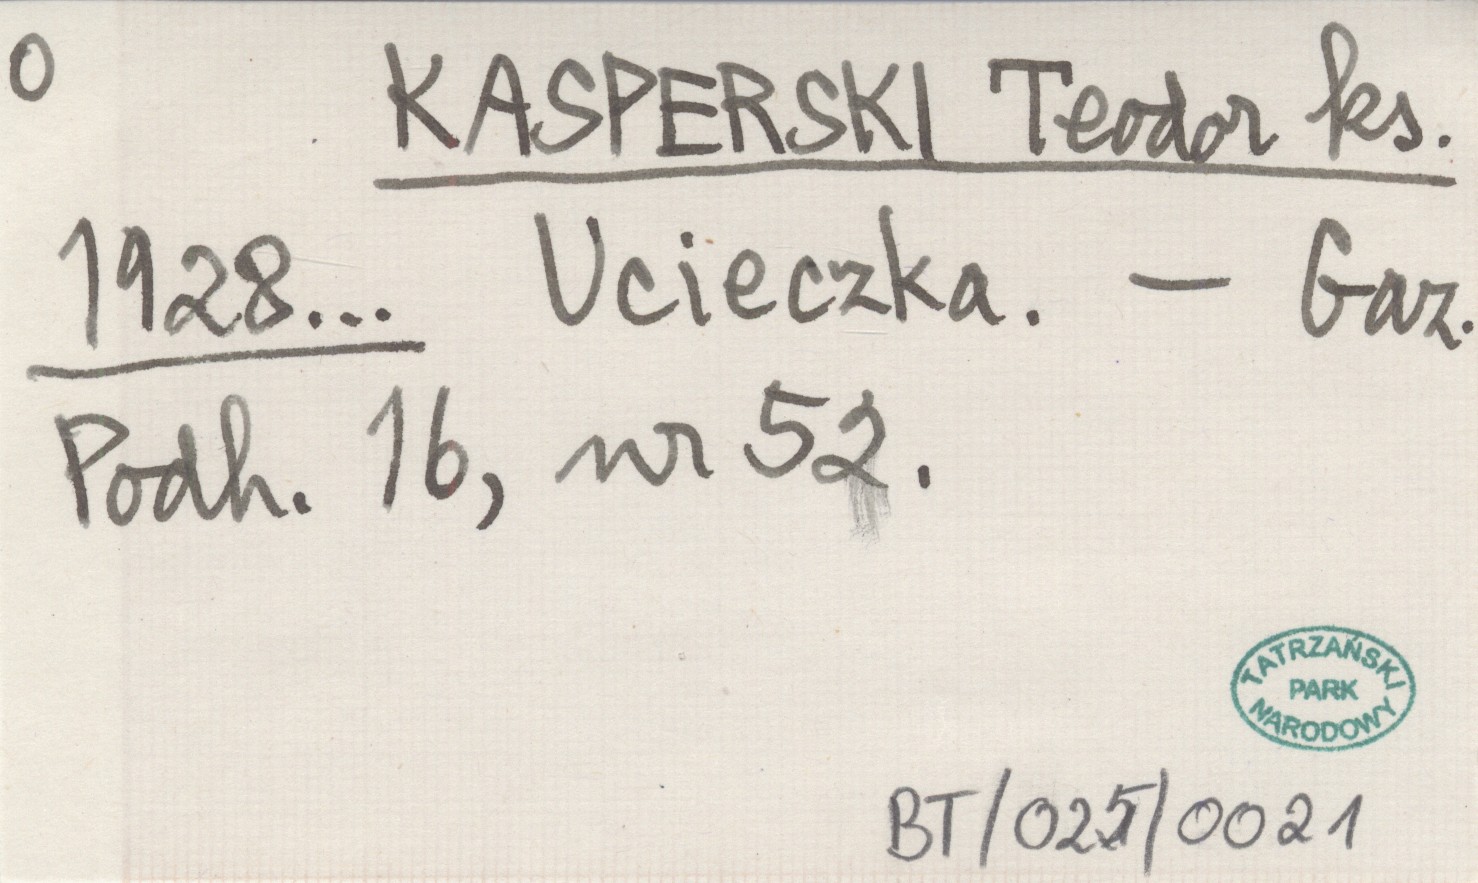 O
KASPERSKI Teodor ks.
1928... Ucieczka. — Gaz.
Podh. 16, nr 52.
TATRZAŃSKI
PARK
NARODOWY
BT/025/0021